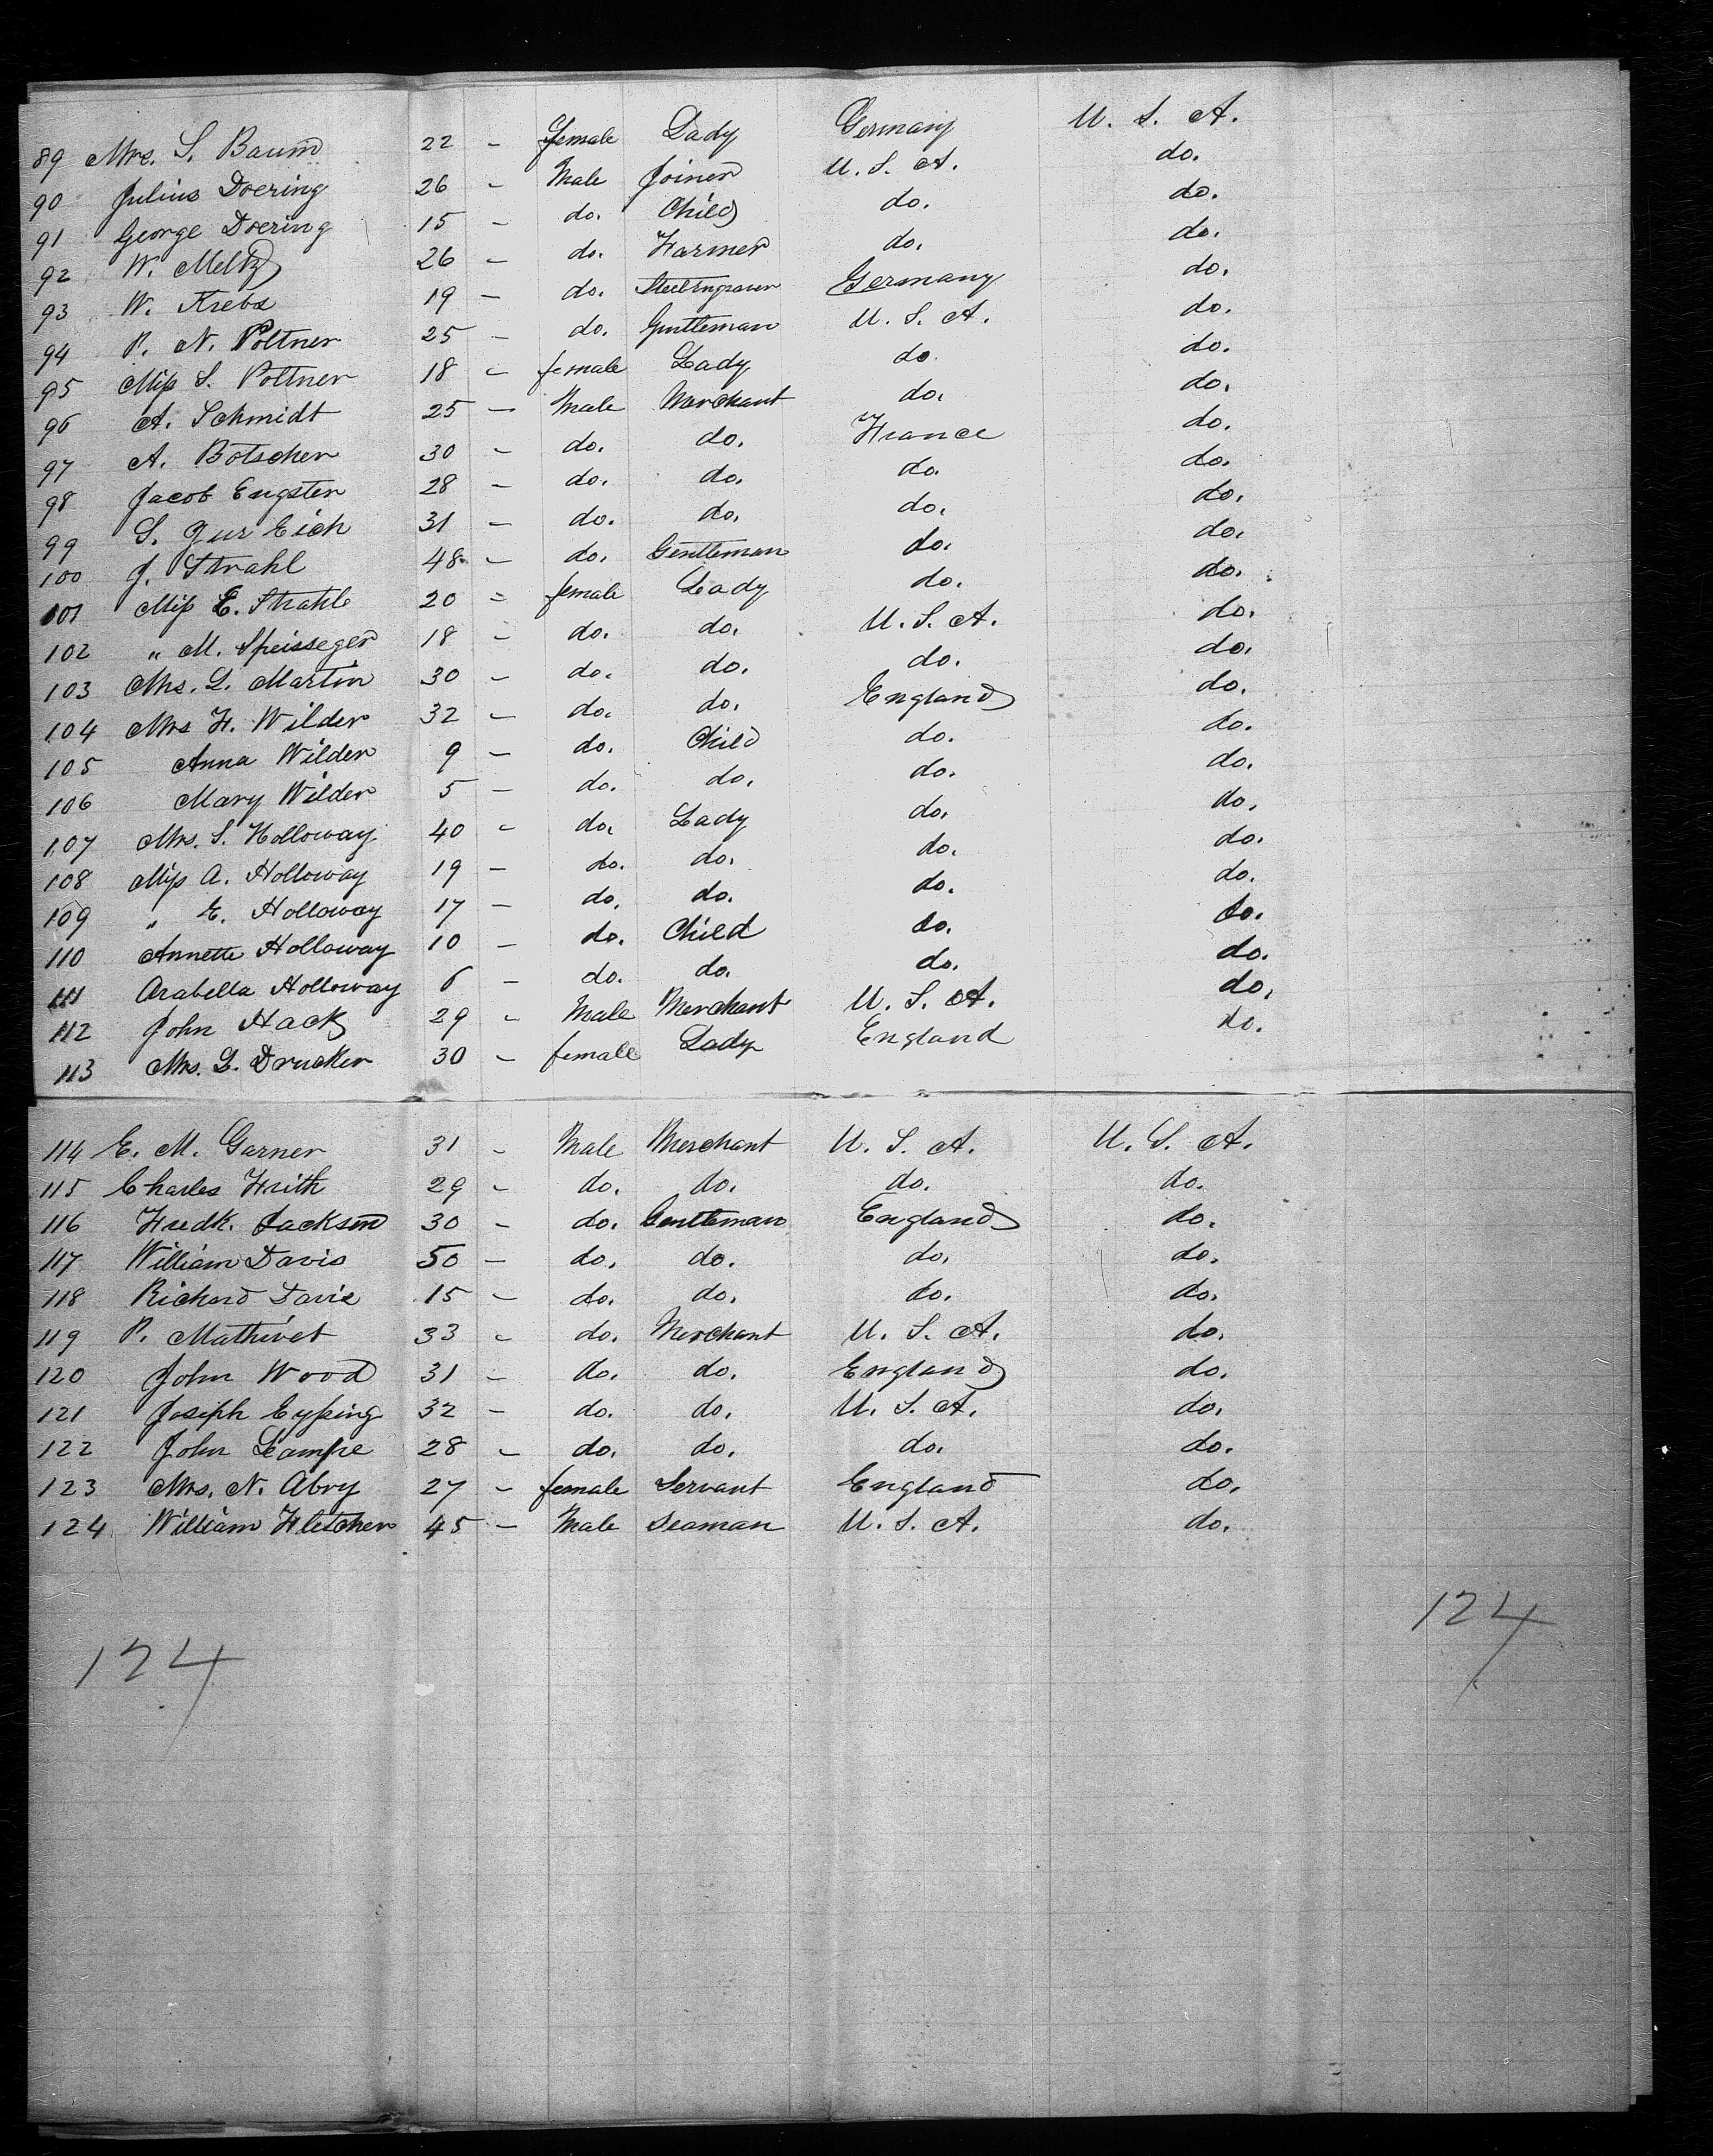 89 Mrs. S. Baum 22 - female Lady Germany U. S. A.
90 Julius Doering 26 - Male Joiner U. S. A. do.
91 George Doering 15 - do. Child do. do.
92 W. Meltz 26 - do. Farmer do. do.
93 W. Krebs 19 - do. Steelengraver Germany do.
94 P. N. Poltner 25 - do. Gentleman U. S. A. do.
95 Miss S. Poltner 18 - female Lady do. do.
96 A. Schmidt 25 - Male Merchant do. do.
97 A. Botscher 30 - do. do. France do.
98 Jacob Engster 28 - do. do. do. do.
99 S. Zur Eich 31 - do. do. do. do.
100 J. Strahl 48 - do. Gentleman do. do.
101 Miss E. Strahle 20 - female Lady do. do.
102 " M. Speisseger 18 - do. do. U. S. A. do.
103 Mrs. L. Martin 30 - do. do. do. do.
104 Mrs H. Wilder 32 - do. do. England do.
105 Anna Wilder 9 - do. Child do. do.
106 Mary Wilder 5 - do. do. do. do.
107 Mrs. S. Holloway 40 - do. Lady do. do.
108 Miss A. Holloway 19 - do. do. do. do.
109 " E. Holloway 17 - do. do. do. do.
110 Annette Holloway 10 - do. Child do. do.
111 Arabella Holloway 6 - do. do. do. do.
112 John Hack 29 - Male Merchant U. S. A. do.
113 Mrs. L. Drucker 30 - female Lady England do.
114 E. M. Garner 31 - Male Merchant U. S. A. U. S. A.
115 Charles Frith 29 - do. do. do. do.
116 Fredk. Jackson 30 - do. Gentleman England do.
117 William Davis 50 - do. do. do. do.
118 Richard Davis 15 - do. do. do. do.
119 P. Mathivet 33 - do. Merchant U. S. A. do.
120 John Wood 31 - do. do. England do.
121 Joseph Eyssing 32 - do. do. U. S. A. do.
122 John Lampe 28 - do. do. do. do.
123 Mrs. N. Abry 27 - female Servant England do.
124 William Fletcher 45 - Male Seaman U. S. A. do.
124
124